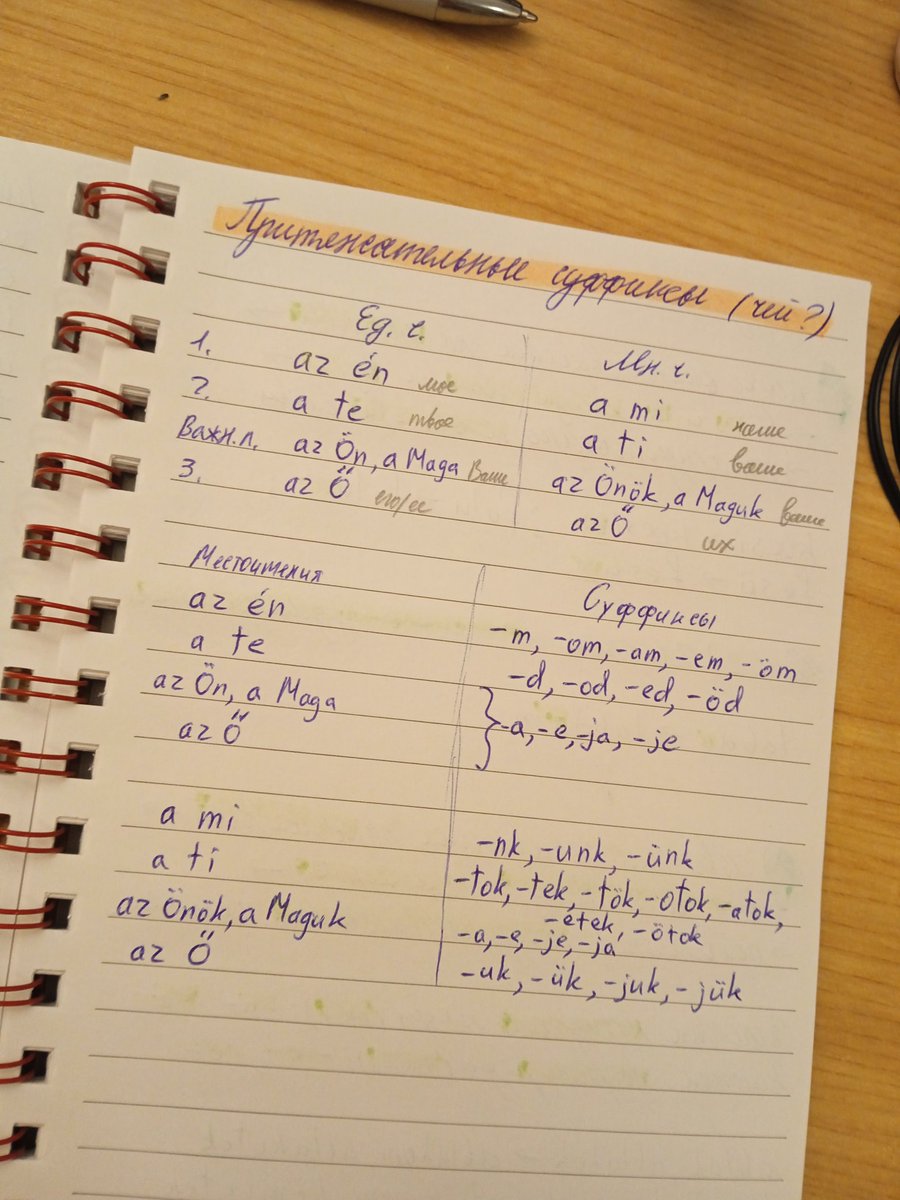 Притяжательные суффиксы (чей?)
Ед. ч. Мн. ч.
1. az én мое a mi наше
2. a te твое a ti ваше
Важн.л. az Ön, a Maga Ваше az Önök, a Maguk ваше
3. az Ő его/ее az Ő их
Местоимения Суффиксы
az én -m, -om, -am, -em, -öm
a te -d, -od, -ed, -öd
az Ön, a Maga
az Ő } -a, -e, -ja, -je
a mi -nk, -unk, -ünk
a ti -tok, -tek, -tök, -otok, -atok,
-etek, -ötok
az Önök, a Maguk -a, -e, -je, -ja
az Ő -uk, -ük, -juk, -jük